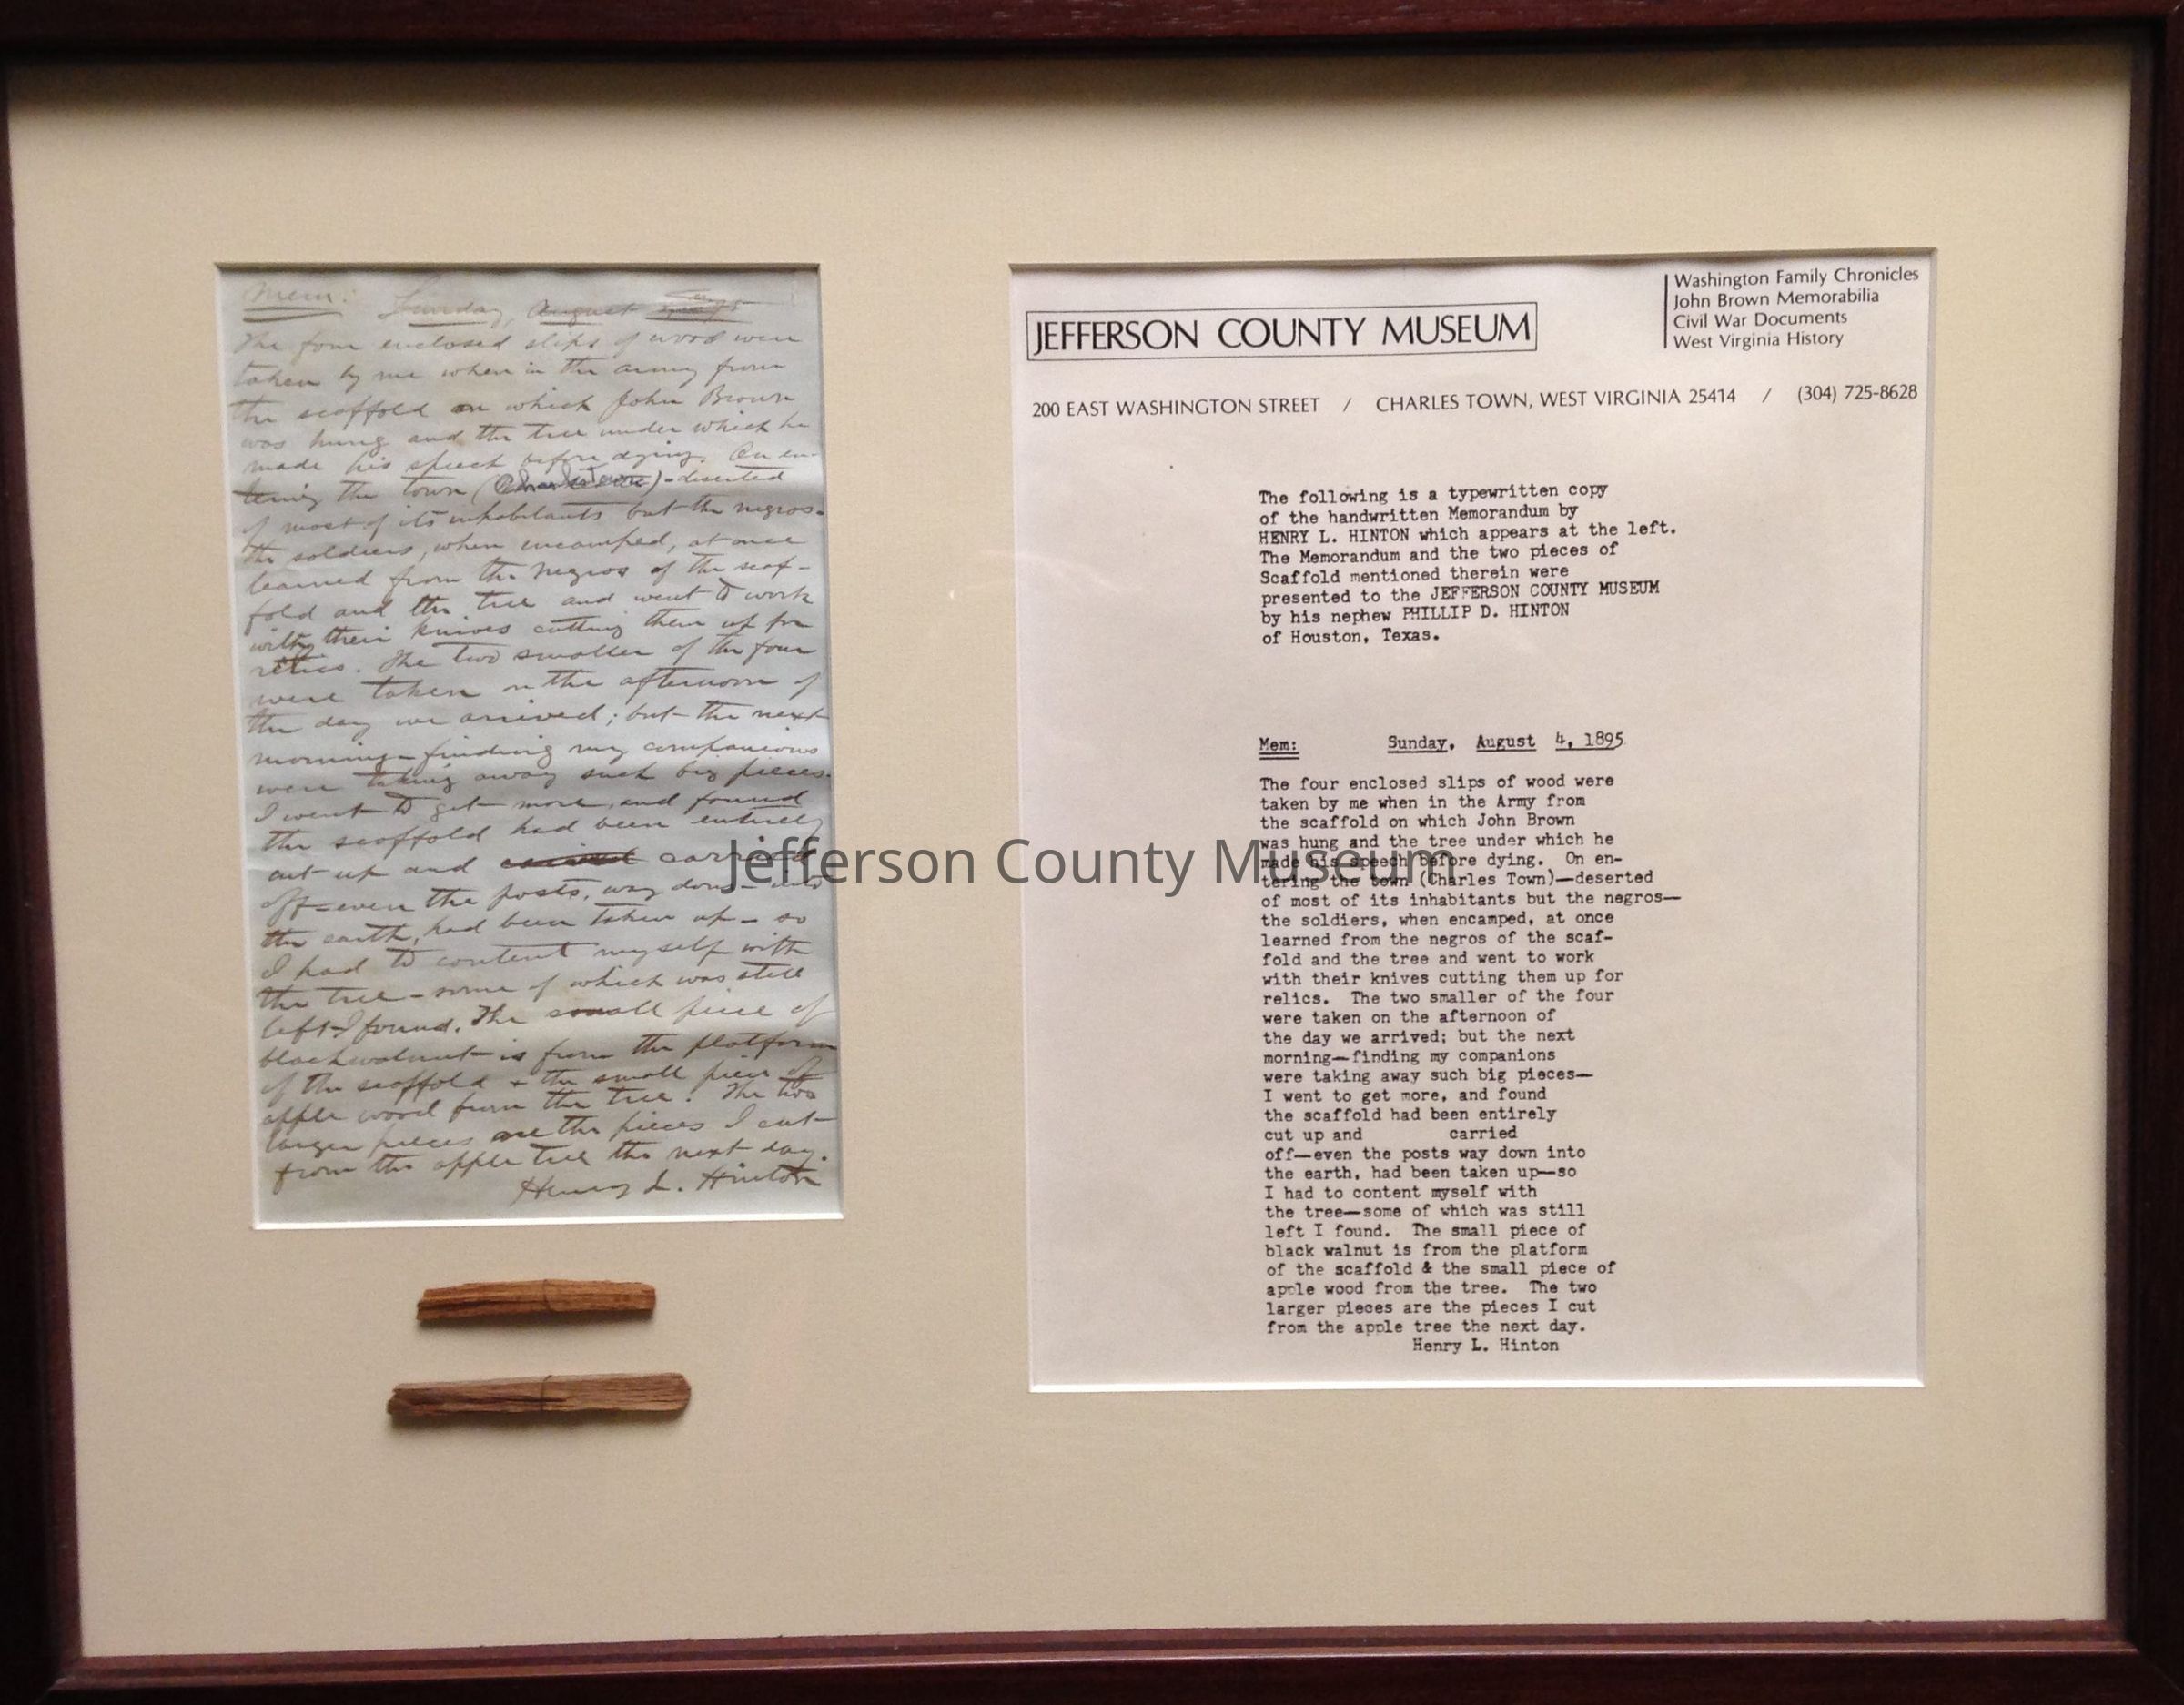 Mem: Sunday, August
The four enclosed slips of wood were
taken by me when in the army from
the scaffold on which John Brown
was hung and the tree under which he
made his speech before dying. On en-
tering the town (Charlestown)—deserted
of most of its inhabitants but the negros—
the soldiers, when encamped, at once
learned from the negros of the scaf-
fold and the tree and went to work
with their knives cutting them up for
relics. The two smaller of the four
were taken on the afternoon of
the day we arrived; but the next
morning—finding my companions
were taking away such big pieces—
I went to get more, and found
the scaffold had been entirely
cut up and carried
off—even the posts, way down into
the earth, had been taken up—so
I had to content myself with
the tree—some of which was still
left I found. The small piece of
black walnut is from the platform
of the scaffold & the small piece of
apple wood from the tree. The two
larger pieces are the pieces I cut
from the apple tree the next day.
Henry L. Hinton
JEFFERSON COUNTY MUSEUM
Washington Family Chronicles
John Brown Memorabilia
Civil War Documents
West Virginia History
200 EAST WASHINGTON STREET / CHARLES TOWN, WEST VIRGINIA 25414 / (304) 725-8628
The following is a typewritten copy
of the handwritten Memorandum by
HENRY L. HINTON which appears at the left.
The Memorandum and the two pieces of
Scaffold mentioned therein were
presented to the JEFFERSON COUNTY MUSEUM
by his nephew PHILLIP D. HINTON
of Houston, Texas.
Mem: Sunday, August 4, 1895
The four enclosed slips of wood were
taken by me when in the Army from
the scaffold on which John Brown
was hung and the tree under which he
made his speech before dying. On en-
tering the town (Charles Town)—deserted
of most of its inhabitants but the negros—
the soldiers, when encamped, at once
learned from the negros of the scaf-
fold and the tree and went to work
with their knives cutting them up for
relics. The two smaller of the four
were taken on the afternoon of
the day we arrived; but the next
morning—finding my companions
were taking away such big pieces—
I went to get more, and found
the scaffold had been entirely
cut up and carried
off—even the posts way down into
the earth, had been taken up—so
I had to content myself with
the tree—some of which was still
left I found. The small piece of
black walnut is from the platform
of the scaffold & the small piece of
apple wood from the tree. The two
larger pieces are the pieces I cut
from the apple tree the next day.
Henry L. Hinton
Jefferson County Museum